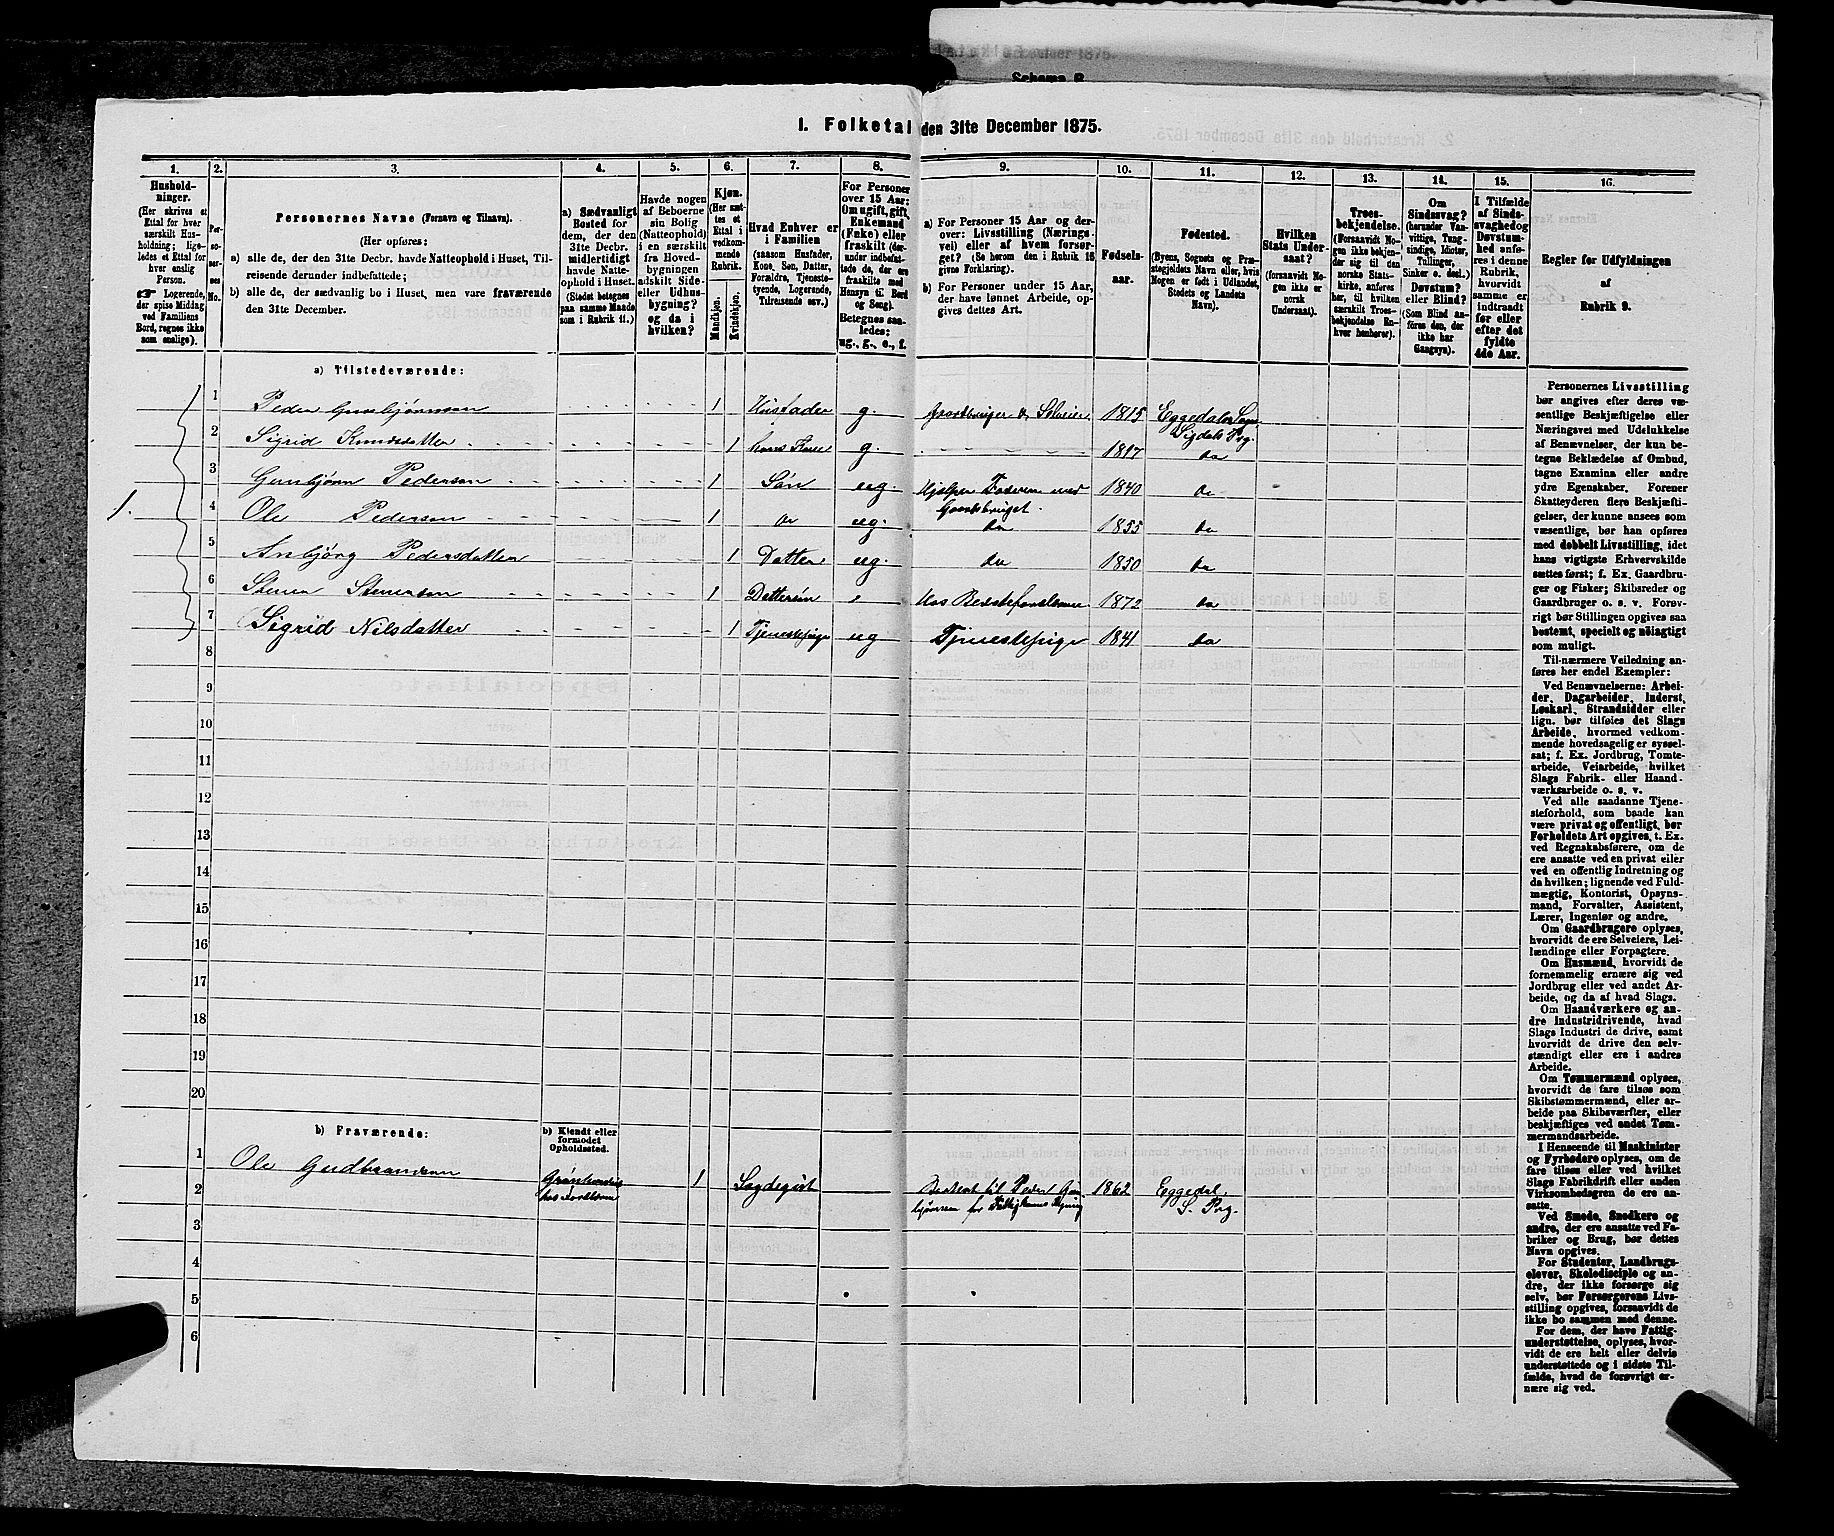 Schema B
I. Folketal den 31te December 1875.
1.
Hushold-
ninger.
(Her skrives et
Ettal for hver
særskilt Hus-
holdning; lige-
ledes et Ettal for
hver enslig
Person.
☞ Logerende,
der spise Middag
ved Familiens
Bord, regnes ikke
som enslige).
2.
Per-
so-
ner-
nes
No.
3.
Personernes Navne (Fornavn og Tilnavn).
(Her opføres:
a) alle de, der den 31te Decbr. havde Natteophold i Huset, Til-
reisende derunder indbefattede;
b) alle de, der sædvanlig bo i Huset, men vare fraværende
den 31te December.
4.
a) Sædvanligt
Bosted for
dem, der den
31te Decbr.
midlertidigt
havde Natte-
ophold i Huset.
(Stedet betegnes
paa samme Maade
som i Rubrik 11.)
5.
Havde nogen
af Beboerne
sin Bolig
(Natteophold)
i en særskilt
fra Hoved-
bygningen
adskilt Side-
eller Udhus-
bygning?
og da i
hvilken?
6.
Kjøn.
(Her sæt-
tes et
Ettal i
vedkom-
mende
Rubrik.
Mandkjøn.
Kvindekjøn.
7.
Hvad Enhver er
i Familien
(saasom Husfader,
Kone, Søn, Datter,
Forældre, Tjeneste-
tyende, Logerende,
Tilreisende osv.)
8.
For Personer
over 15 Aar:
Om ugift, gift,
Enkemand
(Enke) eller
fraskilt (der-
under indbefat-
tede de, der ere
fraskilte med
Hensyn til Bord
og Seng).
Betegnes saa-
ledes:
ug., g., e., f.
9.
a) For Personer 15 Aar og der-
over: Livsstilling (Nærings-
vei) eller af hvem forsør-
get? (Se herom den i Rubrik 16
givne Forklaring).
b) For Personer under 15 Aar,
der have lønnet Arbeide, op-
gives dettes Art.
10.
Fødsels-
aar.
11.
Fødested.
(Byens, Sognets og Præ-
stegjeldets Navn eller, hvis
Nogen er født i Udlandet,
Stedets og Landets
Navn).
12.
Hvilken
Stats Under-
saat?
(forsaavidt No-
gen ikke er
norsk
Undersaat).
13.
Troes-
bekjendelse.
(Forsaavidt No-
gen ikke bekjen-
der sig til den
norske Stats-
kirke, anføres
her, til hvilken
særskilt Troes-
bekjendelse En-
hver henhører).
14.
Om
Sindssvag?
(herunder Van-
vittige, Tung-
sindige, Idioter,
Tullinger,
Sinker o. desl.)
Døvstum?
eller Blind?
(Som Blind an-
føres den, der
ikke har
Gangsyn).
15.
I Tilfælde
af Sinds-
svaghed og
Døvstum-
hed anfø-
res i denne
Rubrik,
hvorvidt
samme er
indtraadt
før eller
efter det
fyldte
4de Aar.
16.
Regler for Udfyldningen
af
Rubrik 9.
a) Tilstedeværende:
1.
1 Peder Gunbjørnsen 1 Husfader g. Gaardbruger & Selveier 1815 Eggedals Sogn Sigdals Prg.
2 Sigrid Knudsdatter 1 hans Kone g. 1817 do
3 Gunbjørn Pedersen 1 Søn ug. Hjelper Faderen med Gaardsbruget. 1840 do
4 Ole Pedersen 1 do ug. do 1855 do
5 Anbjørg Pedersdatter 1 Datter ug. do 1850 do
6 Stener Stenersen 1 Dattersøn Hos Bedsteforældrene 1872 do
7 Sigrid Nilsdatter 1 Tjenestepige ug Tjenestepige 1841 do
8
9
10
11
12
13
14
15
16
17
18
19
20
b) Fraværende:
b) Kjendt eller
formodet
Opholdssted.
1 Ole Gudbrandsen hos Forældrene 1 Lægdegut til Peder Gun-
bjørnsen for Fattigkassens Regning 1862 Eggedal. S. Prg.
2
3
4
5
6
Personernes Livsstilling
bør angives efter deres væ-
sentlige Beskjæftigelse eller
Næringsvei med Udelukkelse
af Benævnelser, der kun be-
tegne Beklædelse af Ombud,
tagne Examina eller andre
ydre Egenskaber. Forener
Skatteyderen flere Beskjæfti-
gelser, der kunne ansees som
væsentlige, bør han opføres
med dobbelt Livsstilling, idet
hans vigtigste Erhvervskilde
sættes først; f. Ex. Gaardbru-
ger og Fisker; Skibsreder og
Gaardbruger o. s. v. Forøv-
rigt bør Stillingen opgives saa
bestemt, specielt og nøiagtigt
som muligt.
Til nærmere Veiledning an-
føres her endel Exempler:
Ved Benævnelserne: Arbei-
der, Dagarbeider, Inderst,
Løskarl, Strandsidder eller
lign. bør tilføies det Slags
Arbeide, hvormed vedkom-
mende hovedsagelig er syssel-
sat; f. Ex. Jordbrug, Tomte-
arbeide, Veiarbeide, hvilket
Slags Fabrik- eller Haand-
værksarbeide o. s. v.
Ved alle saadanne Tjene-
steforhold, som baade kan
være privat og offentligt, bør
Forholdets Art opgives, t. Ex.
ved Regnskabsførere, om de
ere ansatte ved en privat eller
ved en offentlig Indretning og
da hvilken; lignende ved Fuld-
mægtig, Kontorist, Opsyns-
mand, Forvalter, Assistent,
Lærer, Ingeniør og andre.
Om Gaardbrugere oplyses,
hvorvidt de ere Selveiere, Lei-
lændinge eller Forpagtere.
Om Husmænd, hvorvidt de
fornemmelig ernære sig ved
Jordbrug eller ved andet Ar-
beide, og da af hvad Slags.
Om Haandværkere og an-
dre Industridrivende, hvad
Slags Industri de drive, samt
hvorvidt de drive den selv-
stændigt eller ere i andres
Arbeide.
Om Tømmermænd oplyses,
hvorvidt de fare tilsøs som
Skibstømmermænd, eller ar-
beide paa Skibsværfter, eller
beskjæftiges ved andet Tøm-
mermandsarbeide.
I Henseende til Maskinister
og Fyrbødere oplyses, om de
fare tilsøs eller ved hvilket
Slags Fabrikdrift eller anden
Virksomhedsgren de ere an-
satte.
Ved Smede, Snedkere og
andre, der ere ansatte ved Fa-
briker og Brug, bør dettes
Navn opgives.
For Studenter, Landbrugs-
elever, Skoledisciple og an-
dre, der ikke forsørge sig
selv, bør Forsørgerens Livs-
stilling opgives, forsaavidt de
ikke bo sammen med denne.
For dem, der have Fattig-
understøttelse, oplyses, hvor-
vidt de ere helt eller delvis
understøttede og i sidste Til-
fælde, hvad de forøvrigt er-
nære sig ved.